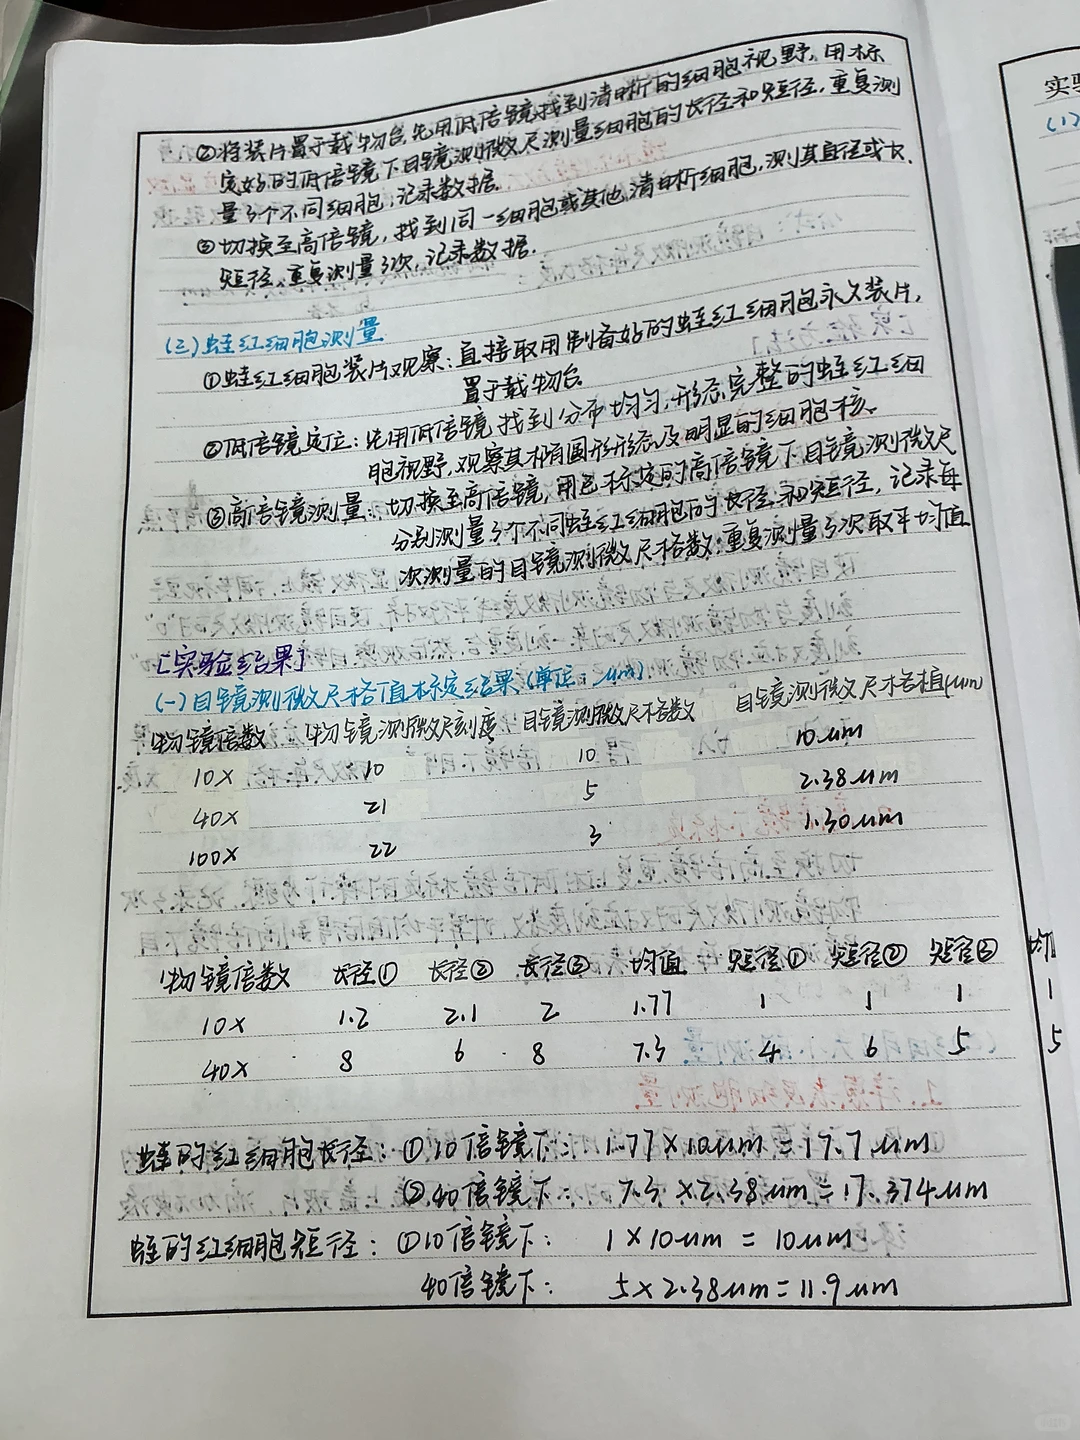 ②将装片置于载物台先用低倍镜找到清晰的细胞视野,用标
定好的低倍镜下目镜测微尺测量细胞的长径和短径,重复测
量3个不同细胞,记录数据.
③切换至高倍镜,找到同一细胞或其他清晰细胞,测其直径或长、
短径,重复测量3次,记录数据.
(三)蛙红细胞测量
①蛙红细胞装片观察:直接取用制备好的蛙红细胞永久装片,
置于载物台.
②低倍镜定位:先用低倍镜找到分布均匀,形态完整的蛙红细
胞视野,观察其椭圆形形态及明显的细胞核。
③高倍镜测量:切换至高倍镜,用已标定的高倍镜下目镜测微尺
分别测量3个不同蛙红细胞的长径和短径,记录每
次测量的目镜测微尺格数;重复测量3次取平均值
[实验结果]
(一)目镜测微尺格值标定结果(单位:μm)
物镜倍数 物镜测微尺刻度 目镜测微尺格数 目镜测微尺格值(μm)
10X 10 10 10μm
40X 21 5 2.38μm
100X 22 3 1.30μm
物镜倍数 长径① 长径② 长径③ 均值 短径① 短径② 短径③
10X 1.2 2.1 2 1.77 1 1 1 1
40X 8 6 8 7.3 4 6 5 5
蛙的红细胞长径:①10倍镜下: 1.77×10μm=17.7μm
②40倍镜下: 7.3×2.38μm=17.374μm
蛙的红细胞短径:①10倍镜下: 1×10μm=10μm
40倍镜下: 5×2.38μm=11.9μm
实验
(1)